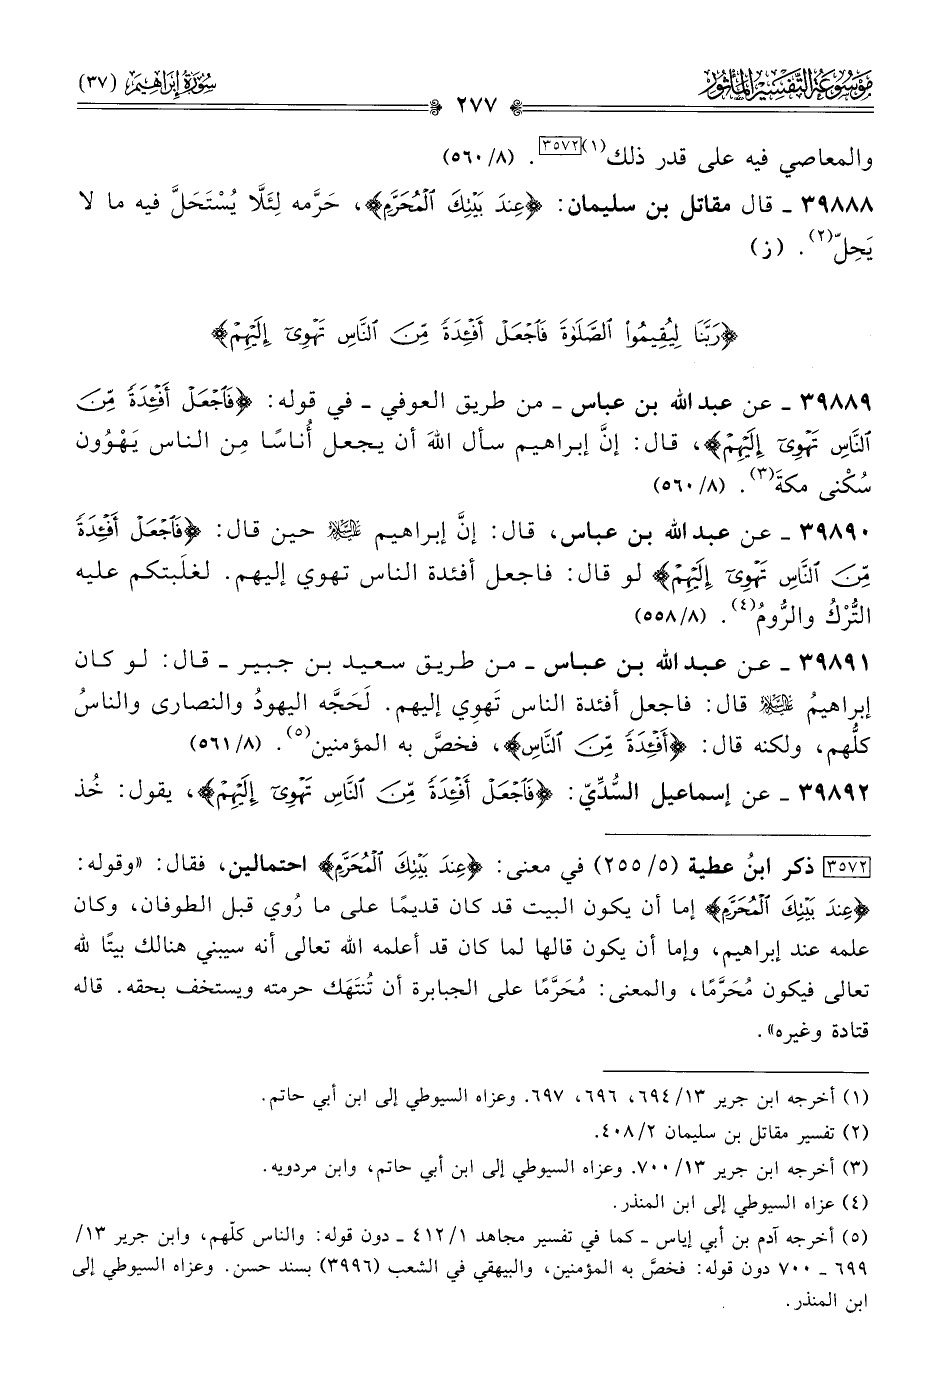 مَوْسُوعَةُ التَّفْسِيرِ المَأْثُورِ
سُورَةُ إِبْرَاهِيم (٣٧)
٢٧٧
والمعاصي فيه على قدر ذلك(١)[٣٥٧٢]. (٥٦٠/٨)
٣٩٨٨٨ - قال مقاتل بن سليمان: ﴿عِندَ بَيْتِكَ ٱلْمُحَرَّمِ﴾، حَرَّمه لِئَلَّا يُسْتَحَلَّ فيه ما لا
يَحِلّ(٢). (ز)
﴿رَبَّنَا لِيُقِيمُوا۟ ٱلصَّلَوٰةَ فَٱجْعَلْ أَفْـِٔدَةً مِّنَ ٱلنَّاسِ تَهْوِىٓ إِلَيْهِمْ﴾
٣٩٨٨٩ - عن عبد الله بن عباس - من طريق العوفي - في قوله: ﴿فَٱجْعَلْ أَفْـِٔدَةً مِّنَ
ٱلنَّاسِ تَهْوِىٓ إِلَيْهِمْ﴾، قال: إنَّ إبراهيم سأل اللهَ أن يجعل أُناسًا مِن الناس يَهْوُون
سُكْنى مكةَ(٣). (٥٦٠/٨)
٣٩٨٩٠ - عن عبد الله بن عباس، قال: إنَّ إبراهيم ﵇ حين قال: ﴿فَٱجْعَلْ أَفْـِٔدَةً
مِّنَ ٱلنَّاسِ تَهْوِىٓ إِلَيْهِمْ﴾ لو قال: فاجعل أفئدة الناس تهوي إليهم. لغلَبتكم عليه
التُّرْكُ والرُّومُ(٤). (٥٥٨/٨)
٣٩٨٩١ - عن عبد الله بن عباس - من طريق سعيد بن جبير - قال: لو كان
إبراهيمُ ﵇ قال: فاجعل أفئدة الناس تَهوِي إليهم. لَحَجَّه اليهودُ والنصارى والناسُ
كلُّهم، ولكنه قال: ﴿أَفْـِٔدَةً مِّنَ ٱلنَّاسِ﴾، فخصَّ به المؤمنين(٥). (٥٦١/٨)
٣٩٨٩٢ - عن إسماعيل السُّدِّيّ: ﴿فَٱجْعَلْ أَفْـِٔدَةً مِّنَ ٱلنَّاسِ تَهْوِىٓ إِلَيْهِمْ﴾، يقول: خُذ
[٣٥٧٢] ذكر ابنُ عطية (٢٥٥/٥) في معنى: ﴿عِندَ بَيْتِكَ ٱلْمُحَرَّمِ﴾ احتمالين، فقال: «وقوله:
﴿عِندَ بَيْتِكَ ٱلْمُحَرَّمِ﴾ إما أن يكون البيت قد كان قديمًا على ما رُوي قبل الطوفان، وكان
علمه عند إبراهيم، وإما أن يكون قالها لما كان قد أعلمه الله تعالى أنه سيبني هنالك بيتًا لله
تعالى فيكون مُحَرَّمًا، والمعنى: مُحَرَّمًا على الجبابرة أن تُنتَهَك حرمته ويستخف بحقه. قاله
قتادة وغيره».
(١) أخرجه ابن جرير ١٣/ ٦٩٤، ٦٩٦، ٦٩٧. وعزاه السيوطي إلى ابن أبي حاتم.
(٢) تفسير مقاتل بن سليمان ٢/ ٤٠٨.
(٣) أخرجه ابن جرير ١٣/ ٧٠٠. وعزاه السيوطي إلى ابن أبي حاتم، وابن مردويه.
(٤) عزاه السيوطي إلى ابن المنذر.
(٥) أخرجه آدم بن أبي إياس - كما في تفسير مجاهد ١/ ٤١٢ - دون قوله: والناس كلّهم، وابن جرير ١٣/
٦٩٩ - ٧٠٠ دون قوله: فخصَّ به المؤمنين، والبيهقي في الشعب (٣٩٩٦) بسند حسن. وعزاه السيوطي إلى
ابن المنذر.